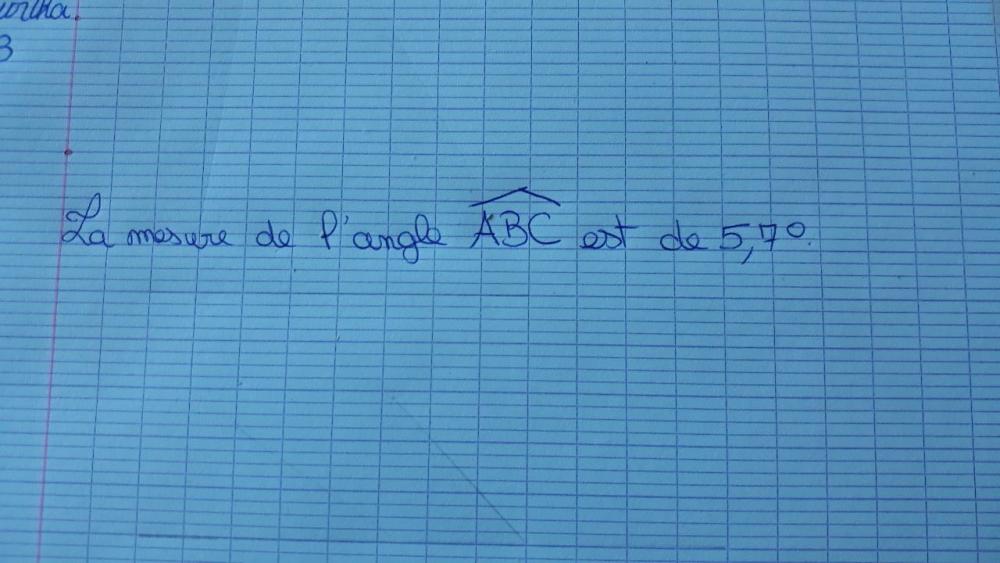 3
La mesure de l'angle ABC est de 5,7°.